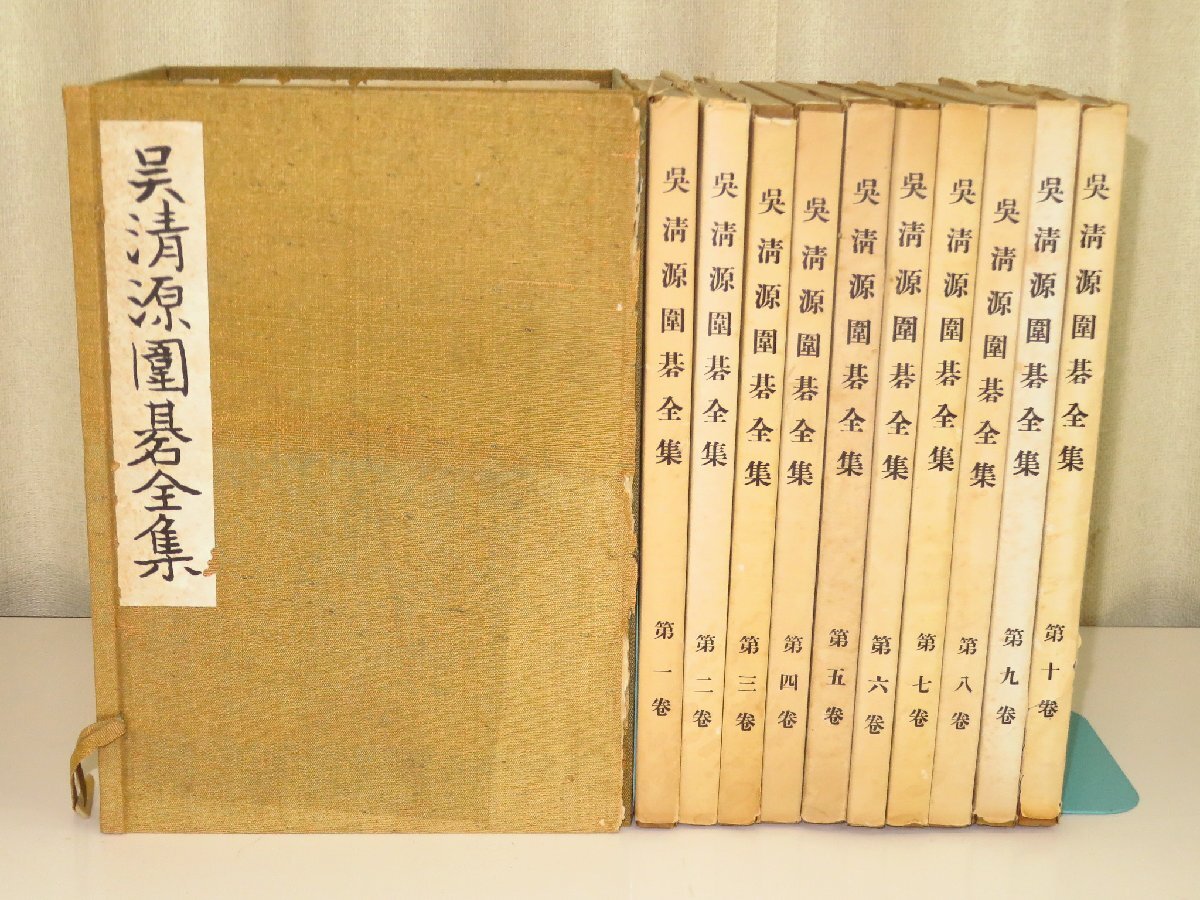 吴清源圍碁全集
吳清源圍碁全集 第一卷
吳清源圍碁全集 第二卷
吳清源圍碁全集 第三卷
吳清源圍碁全集 第四卷
吳清源圍碁全集 第五卷
吳清源圍碁全集 第六卷
吳清源圍碁全集 第七卷
吳清源圍碁全集 第八卷
吳清源圍碁全集 第九卷
吳清源圍碁全集 第十卷